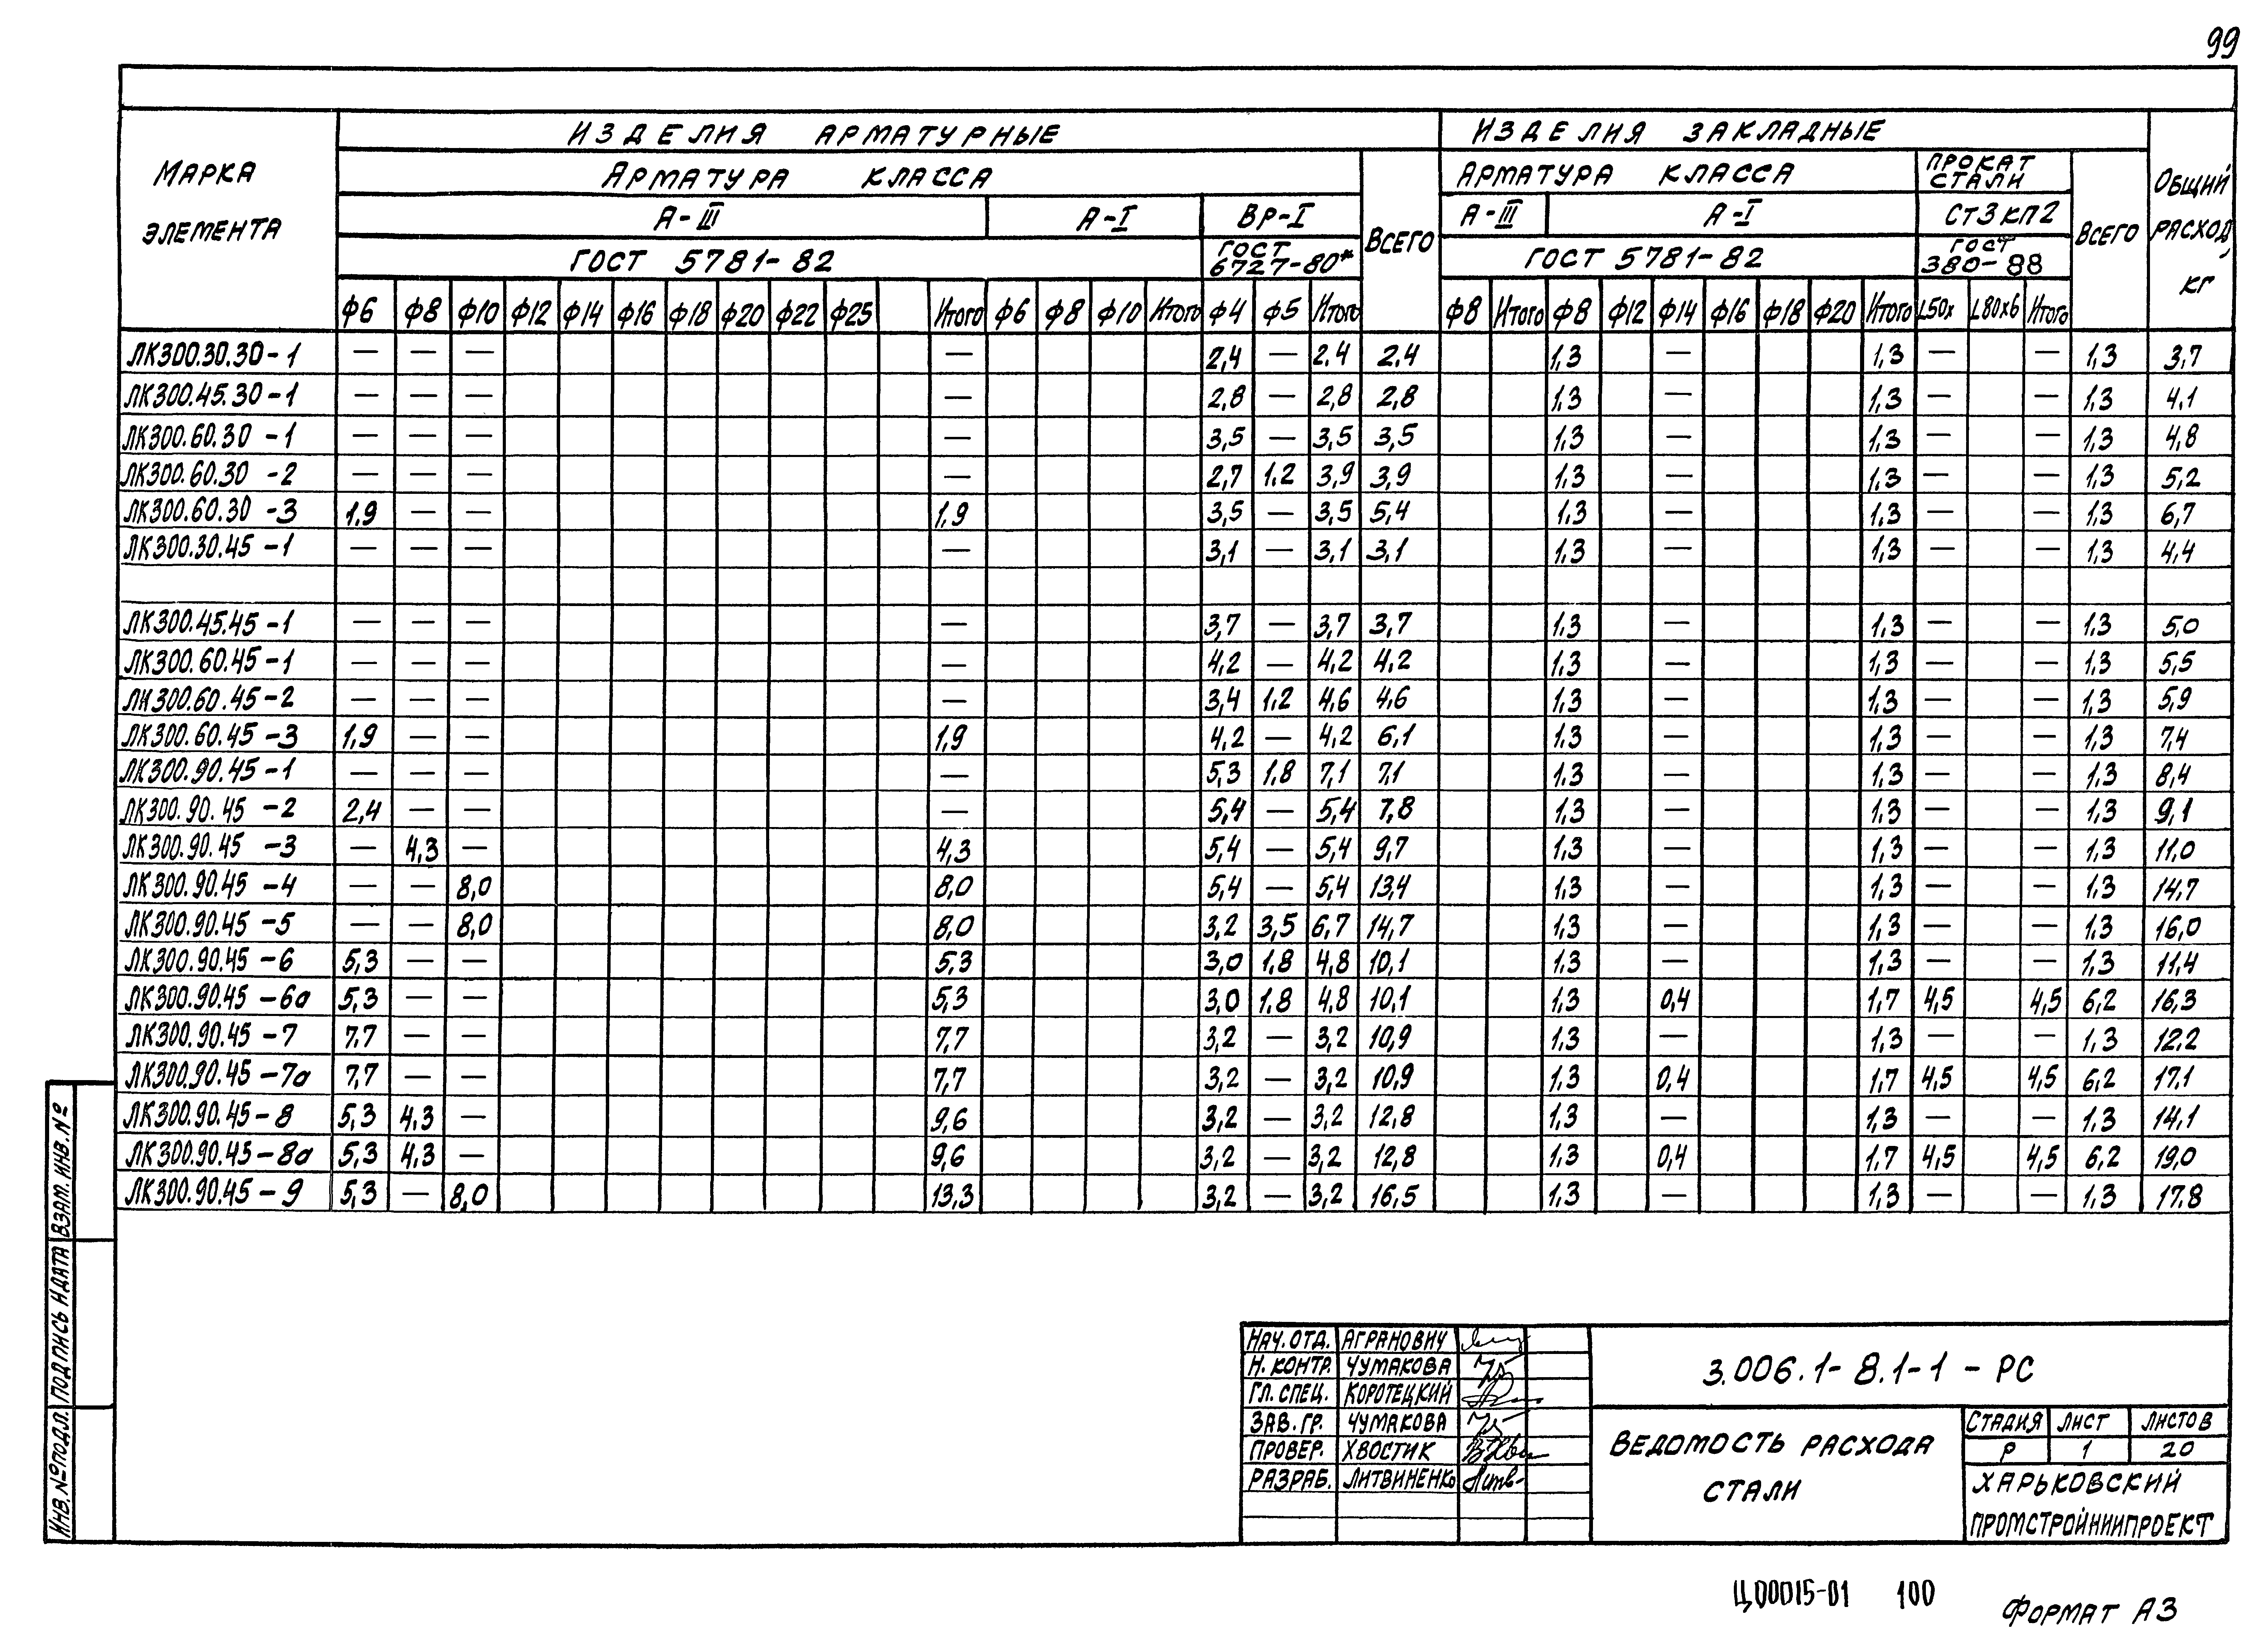 99
ИЗДЕЛИЯ АРМАТУРНЫЕ ИЗДЕЛИЯ ЗАКЛАДНЫЕ
МАРКА ЭЛЕМЕНТА АРМАТУРА КЛАССА ВСЕГО АРМАТУРА КЛАССА ПРОКАТ СТАЛИ ВСЕГО ОБЩИЙ РАСХОД, КГ
А-III А-I ВР-I А-III А-I СТ3КП2
ГОСТ 5781-82 ГОСТ 6727-80* ГОСТ 5781-82 ГОСТ 380-88
Ф6 Ф8 Ф10 Ф12 Ф14 Ф16 Ф18 Ф20 Ф22 Ф25 Итого Ф6 Ф8 Ф10 Итого Ф4 Ф5 Итого Ф8 Итого Ф8 Ф12 Ф14 Ф16 Ф18 Ф20 Итого L50х L80х6 Итого
ЛК300.30.30-1 — — — — 2,4 — 2,4 2,4 1,3 — 1,3 — — 1,3 3,7
ЛК300.45.30-1 — — — — 2,8 — 2,8 2,8 1,3 — 1,3 — — 1,3 4,1
ЛК300.60.30-1 — — — — 3,5 — 3,5 3,5 1,3 — 1,3 — — 1,3 4,8
ЛК300.60.30-2 — — — — 2,7 1,2 3,9 3,9 1,3 — 1,3 — — 1,3 5,2
ЛК300.60.30-3 1,9 — — 1,9 3,5 — 3,5 5,4 1,3 — 1,3 — — 1,3 6,7
ЛК300.30.45-1 — — — — 3,1 — 3,1 3,1 1,3 — 1,3 — — 1,3 4,4
ЛК300.45.45-1 — — — — 3,7 — 3,7 3,7 1,3 — 1,3 — — 1,3 5,0
ЛК300.60.45-1 — — — — 4,2 — 4,2 4,2 1,3 — 1,3 — — 1,3 5,5
ЛК300.60.45-2 — — — — 3,4 1,2 4,6 4,6 1,3 — 1,3 — — 1,3 5,9
ЛК300.60.45-3 1,9 — — 1,9 4,2 — 4,2 6,1 1,3 — 1,3 — — 1,3 7,4
ЛК300.90.45-1 — — — — 5,3 1,8 7,1 7,1 1,3 — 1,3 — — 1,3 8,4
ЛК300.90.45-2 2,4 — — — 5,4 — 5,4 7,8 1,3 — 1,3 — — 1,3 9,1
ЛК300.90.45-3 — 4,3 — 4,3 5,4 — 5,4 9,7 1,3 — 1,3 — — 1,3 11,0
ЛК300.90.45-4 — — 8,0 8,0 5,4 — 5,4 13,4 1,3 — 1,3 — — 1,3 14,7
ЛК300.90.45-5 — — 8,0 8,0 3,2 3,5 6,7 14,7 1,3 — 1,3 — — 1,3 16,0
ЛК300.90.45-6 5,3 — — 5,3 3,0 1,8 4,8 10,1 1,3 — 1,3 — — 1,3 11,4
ЛК300.90.45-6а 5,3 — — 5,3 3,0 1,8 4,8 10,1 1,3 0,4 1,7 4,5 4,5 6,2 16,3
ЛК300.90.45-7 7,7 — — 7,7 3,2 — 3,2 10,9 1,3 — 1,3 — — 1,3 12,2
ЛК300.90.45-7а 7,7 — — 7,7 3,2 — 3,2 10,9 1,3 0,4 1,7 4,5 4,5 6,2 17,1
ЛК300.90.45-8 5,3 4,3 — 9,6 3,2 — 3,2 12,8 1,3 — 1,3 — — 1,3 14,1
ЛК300.90.45-8а 5,3 4,3 — 9,6 3,2 — 3,2 12,8 1,3 0,4 1,7 4,5 4,5 6,2 19,0
ЛК300.90.45-9 5,3 — 8,0 13,3 3,2 — 3,2 16,5 1,3 — 1,3 — — 1,3 17,8
ИНВ.№ПОДЛ. ПОДПИСЬ И ДАТА ВЗАМ.ИНВ.№
НАЧ.ОТД. АГРАНОВИЧ
Н.КОНТР. ЧУМАКОВА
ГЛ.СПЕЦ. КОРОТЕЦКИЙ
ЗАВ.ГР. ЧУМАКОВА
ПРОВЕР. ХВОСТИК
РАЗРАБ. ЛИТВИНЕНКО
3.006.1-8.1-1-РС
ВЕДОМОСТЬ РАСХОДА
СТАЛИ
СТАДИЯ ЛИСТ ЛИСТОВ
Р 1 20
ХАРЬКОВСКИЙ
ПРОМСТРОЙНИИПРОЕКТ
Ц00015-01 100
ФОРМАТ А3